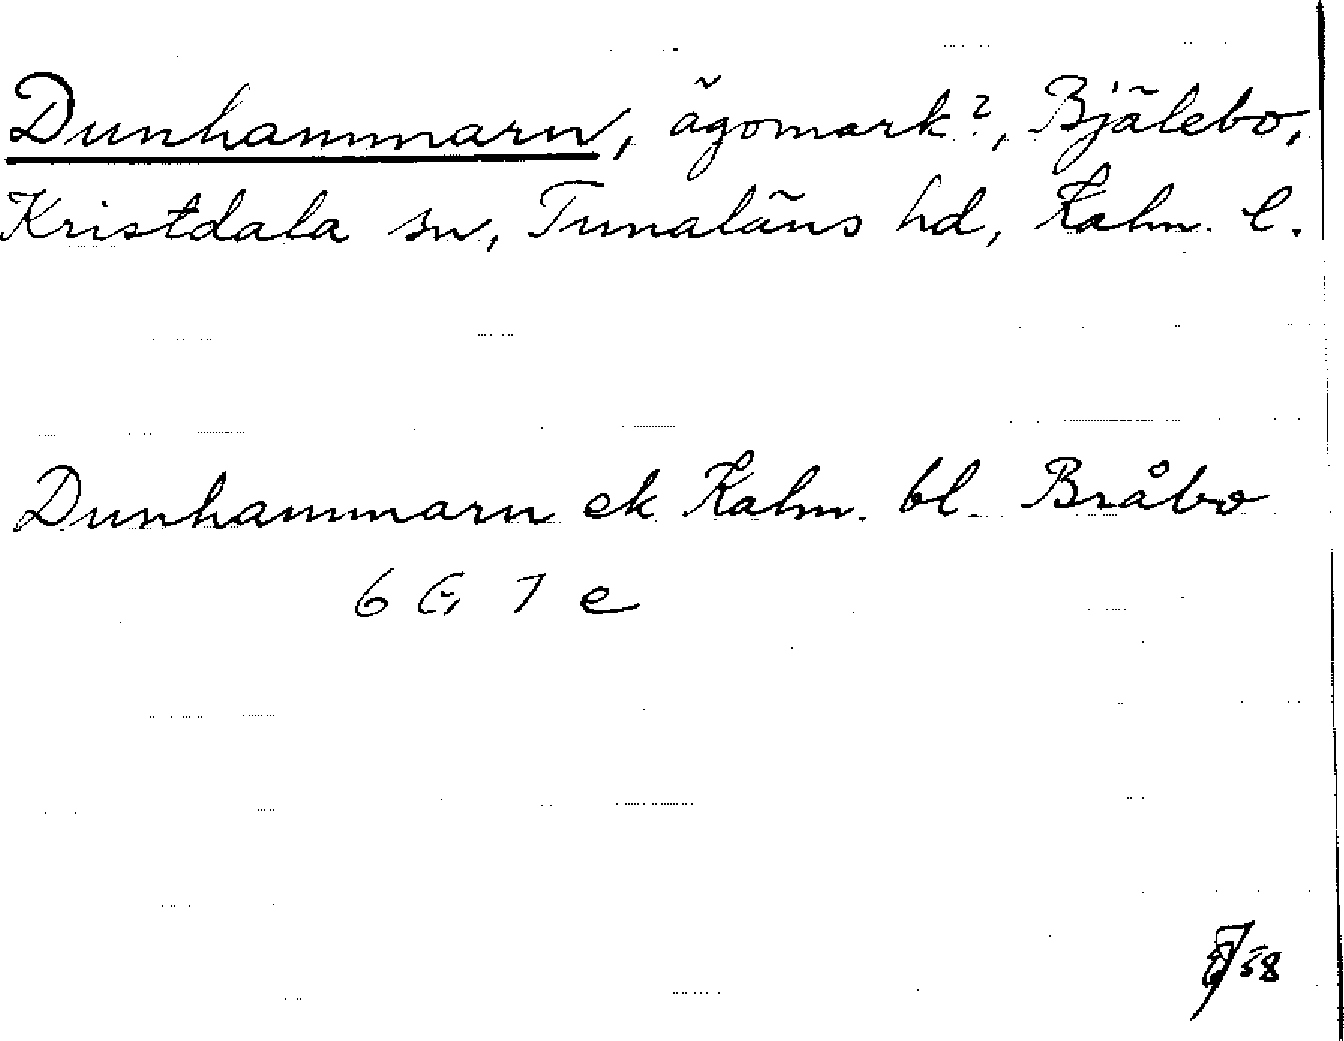 Dunhammarn, ägomark?, Bjälebo,
Kristdala sn, Tunaläns hd, Kalm. l.
Dunhammarn ek Kalm. bl. Bråbo
6 G 7 e
58